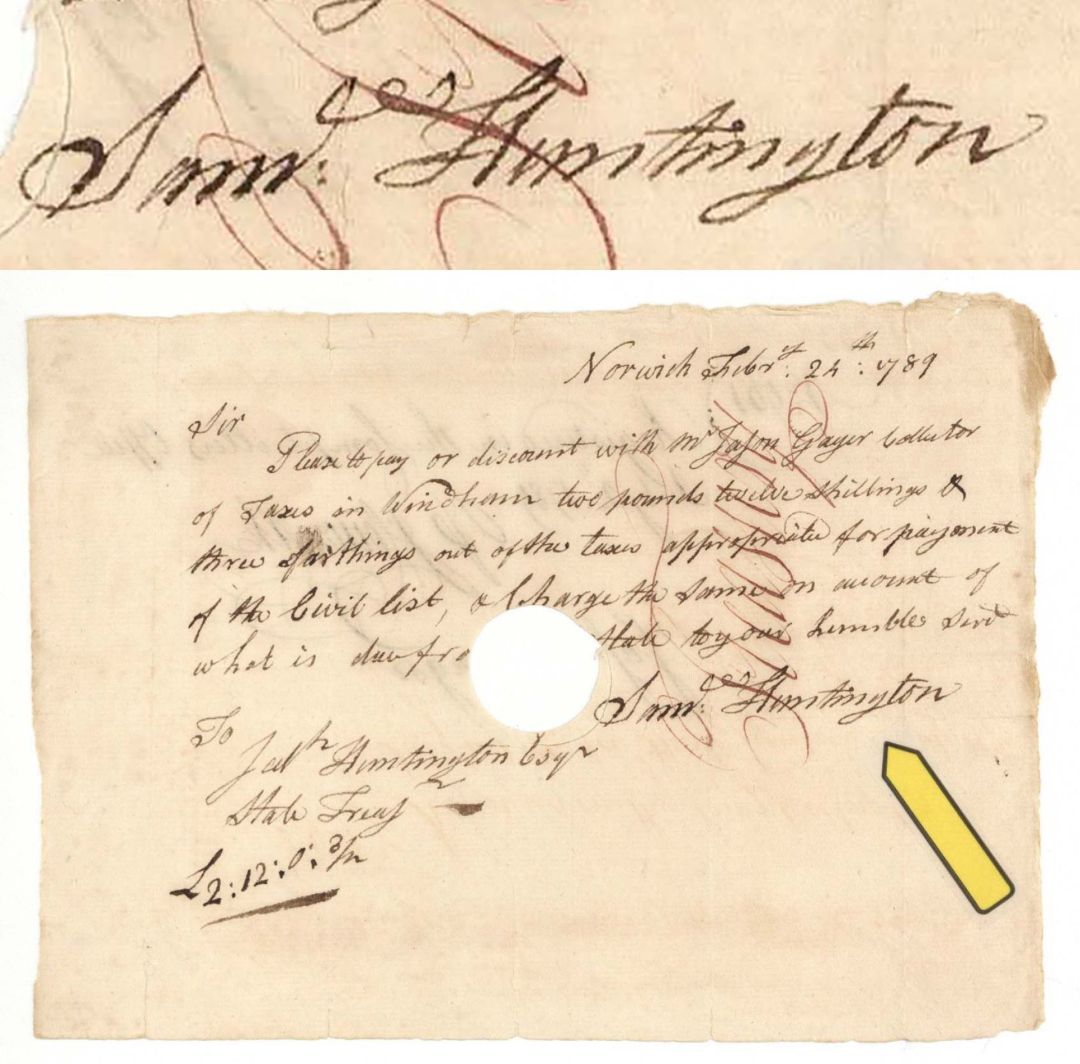 Sam^el: Huntington
Norwich Febr^y: 24^th: 1789
Sir
Please to pay or discount with M^r Jason Gager Collector
of Taxes in Windham two pounds twelve shillings &
three farthings out of the taxes appropriated for payment
of the Civil list, & Charge the same on account of
what is due fro State to your humble Serv^t
Sam^el: Huntington
To
Jed^h Huntington Esq^r
State Treas^r
£2:12:0:3/4